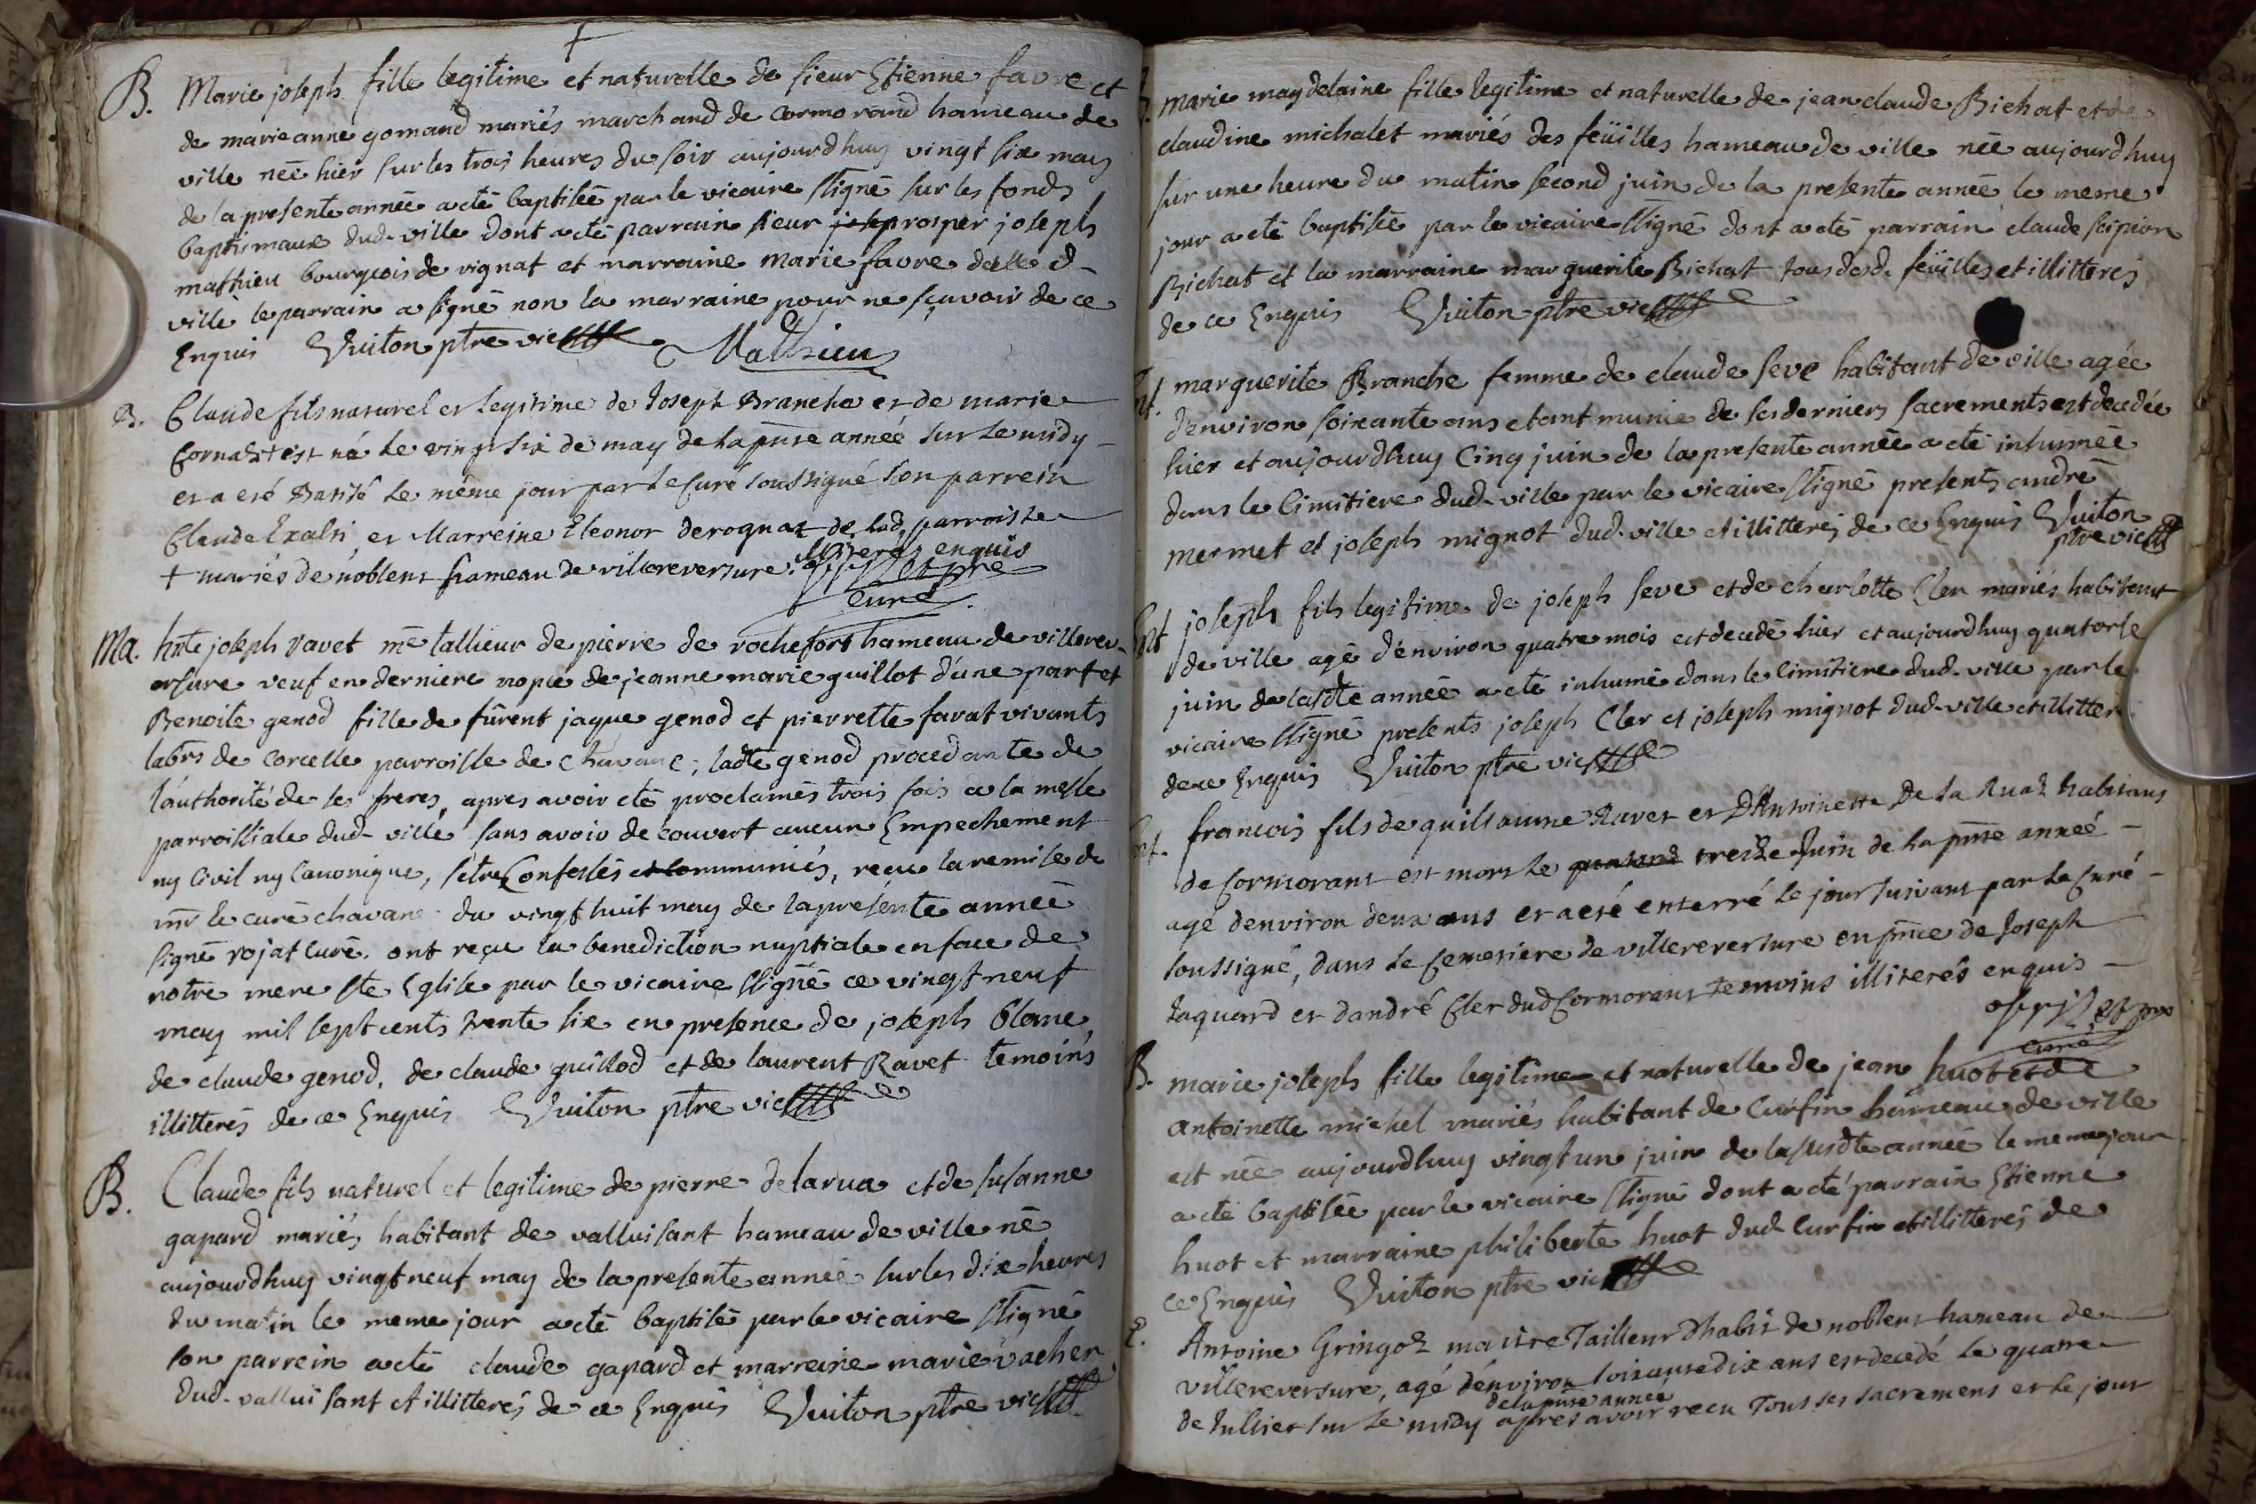 B. Marie joseph fille legitime et naturelle de sieur Etienne favre et
de marie anne gomand mariés marchand de cormorand hameau de
ville née hier sur les trois heures du soir aujourdhuy vingt six may
de la presente année a eté baptisée par le vicaire ssigné sur les fonds
baptismaux dud. ville dont a eté parrain sieur prosper joseph
mathieu bourgeois de vignat et marraine marie favre d
ville le parrain a signé non la marraine pour ne sçavoir de ce
Enquis Vuiton ptre vic Mathieu
B. Claude fils naturel et legitime de Joseph Branche et de marie
Cornaz + est né le vingt six de may de la pnte année sur le midy
et a eté Batisé le même jour par le Curé soussigné son parrein
Claude Exalti et Marreine Eleonor derognat de lad. parroisse
+ mariés de noblens hameau de villereversure illiterés enquis
curé
Ma. hnte joseph ravet me tallieur de pierre de rochefort hameau de villerev-
ersure veuf en derniere nopce de jeanne marie guillot d'une part et
Benoite genod fille de fûrent jaque genod et pierrette favat vivants
labrs de corcelle parroisse de chavane; ladte genod procedante de
l'authorité de ses freres, apres avoir eté proclamés trois fois a la messe
parroissiale dud. ville sans avoir decouvert aucun Empechement
ny Civil ny Canonique, s'etre Confessés et communiés, reçu la remise de
mr le curé chavane du vingt huit may de la présente année
signé rojat curé. ont reçu la benediction nuptiale en face de
notre mere ste Eglise par le vicaire ssigné ce vingt neuf
may mil sept cents trente six en presence de joseph blanc,
de claude genod, de claude guillod et de laurent Ravet temoins
illitterés de ce Enquis Vuiton ptre vic
B. Claude fils naturel et legitime de pierre delarua et de susanne
gapard mariés habitant de valluisant hameau de ville né
aujourdhuy vingt neuf may de la presente année sur les dix heures
du matin le meme jour a eté baptisé par le vicaire ssigné
son parrein a eté claude gapard et marreine marie vacher
dud. valluisant et illitterés de ce Enquis Vuiton ptre vic
B. marie magdelaine fille legitime et naturelle de jean claude Bichat et de
claudine michalet mariés des feüilles hameau de ville née aujourdhuy
sur une heure du matin second juin de la presente année le meme
jour a eté baptisée par le vicaire ssigné dont a eté parrain claude scipion
Bichat et la marraine marguerite Bichat tous desd. feüilles et illitterés
de ce Enquis Vuiton ptre vic
Ent. marguerite Branche femme de claude seve habitant de ville agée
d'environ soixante ans etant munie de ses derniers sacrements est decedée
hier et aujourdhuy Cinq juin de la presente année a eté inhumée
dans le Cimitiere dud. ville par le vicaire ssigné presents andré
mermet et joseph mignot dud. ville et illitterés de ce Enquis Vuiton
ptre vic
Ent joseph fils legitime de joseph seve et de charlotte Cler mariés habitant
de ville agé d'environ quatre mois est decedé hier et aujourdhuy quatorse
juin de lasdte année a eté inhumé dans le Cimitiere dud. ville par le
vicaire ssigné presents joseph Cler et joseph mignot dud. ville et illitter
de ce Enquis Vuiton ptre vic
Ent. francois fils de guillaume Ravet et D'Antoinette De la Ruaz habitans
de Cormorant est mort le treize Juin de la pnte année
agé denviron deux ans et a eté enterré le jour suivant par le Curé
soussigné, dans le Cemetiere de villereversure en pnce de Joseph
Jaquard et dandré Cler dud Cormorant temoins illiterés enquis
curé
B. marie joseph fille legitime et naturelle de jean huot et de
antoinette michel mariés habitant de Curfin hameau de ville
est née aujourdhuy vingt un juin de la susdte année le meme jour
a eté baptisée par le vicaire ssigné dont a eté parrain Etienne
huot et marraine philiberte huot dud Curfin et illitterés de
ce Enquis Vuiton ptre vic
E. Antoine Gringoz maitre Tailleur d'habit de noblens hameau de
villereversure, agé d'environ soixante dix ans est decedé le quatre
de la pnte année
de Julliet sur le midy apres avoir recu Tous ses sacremens et le jour